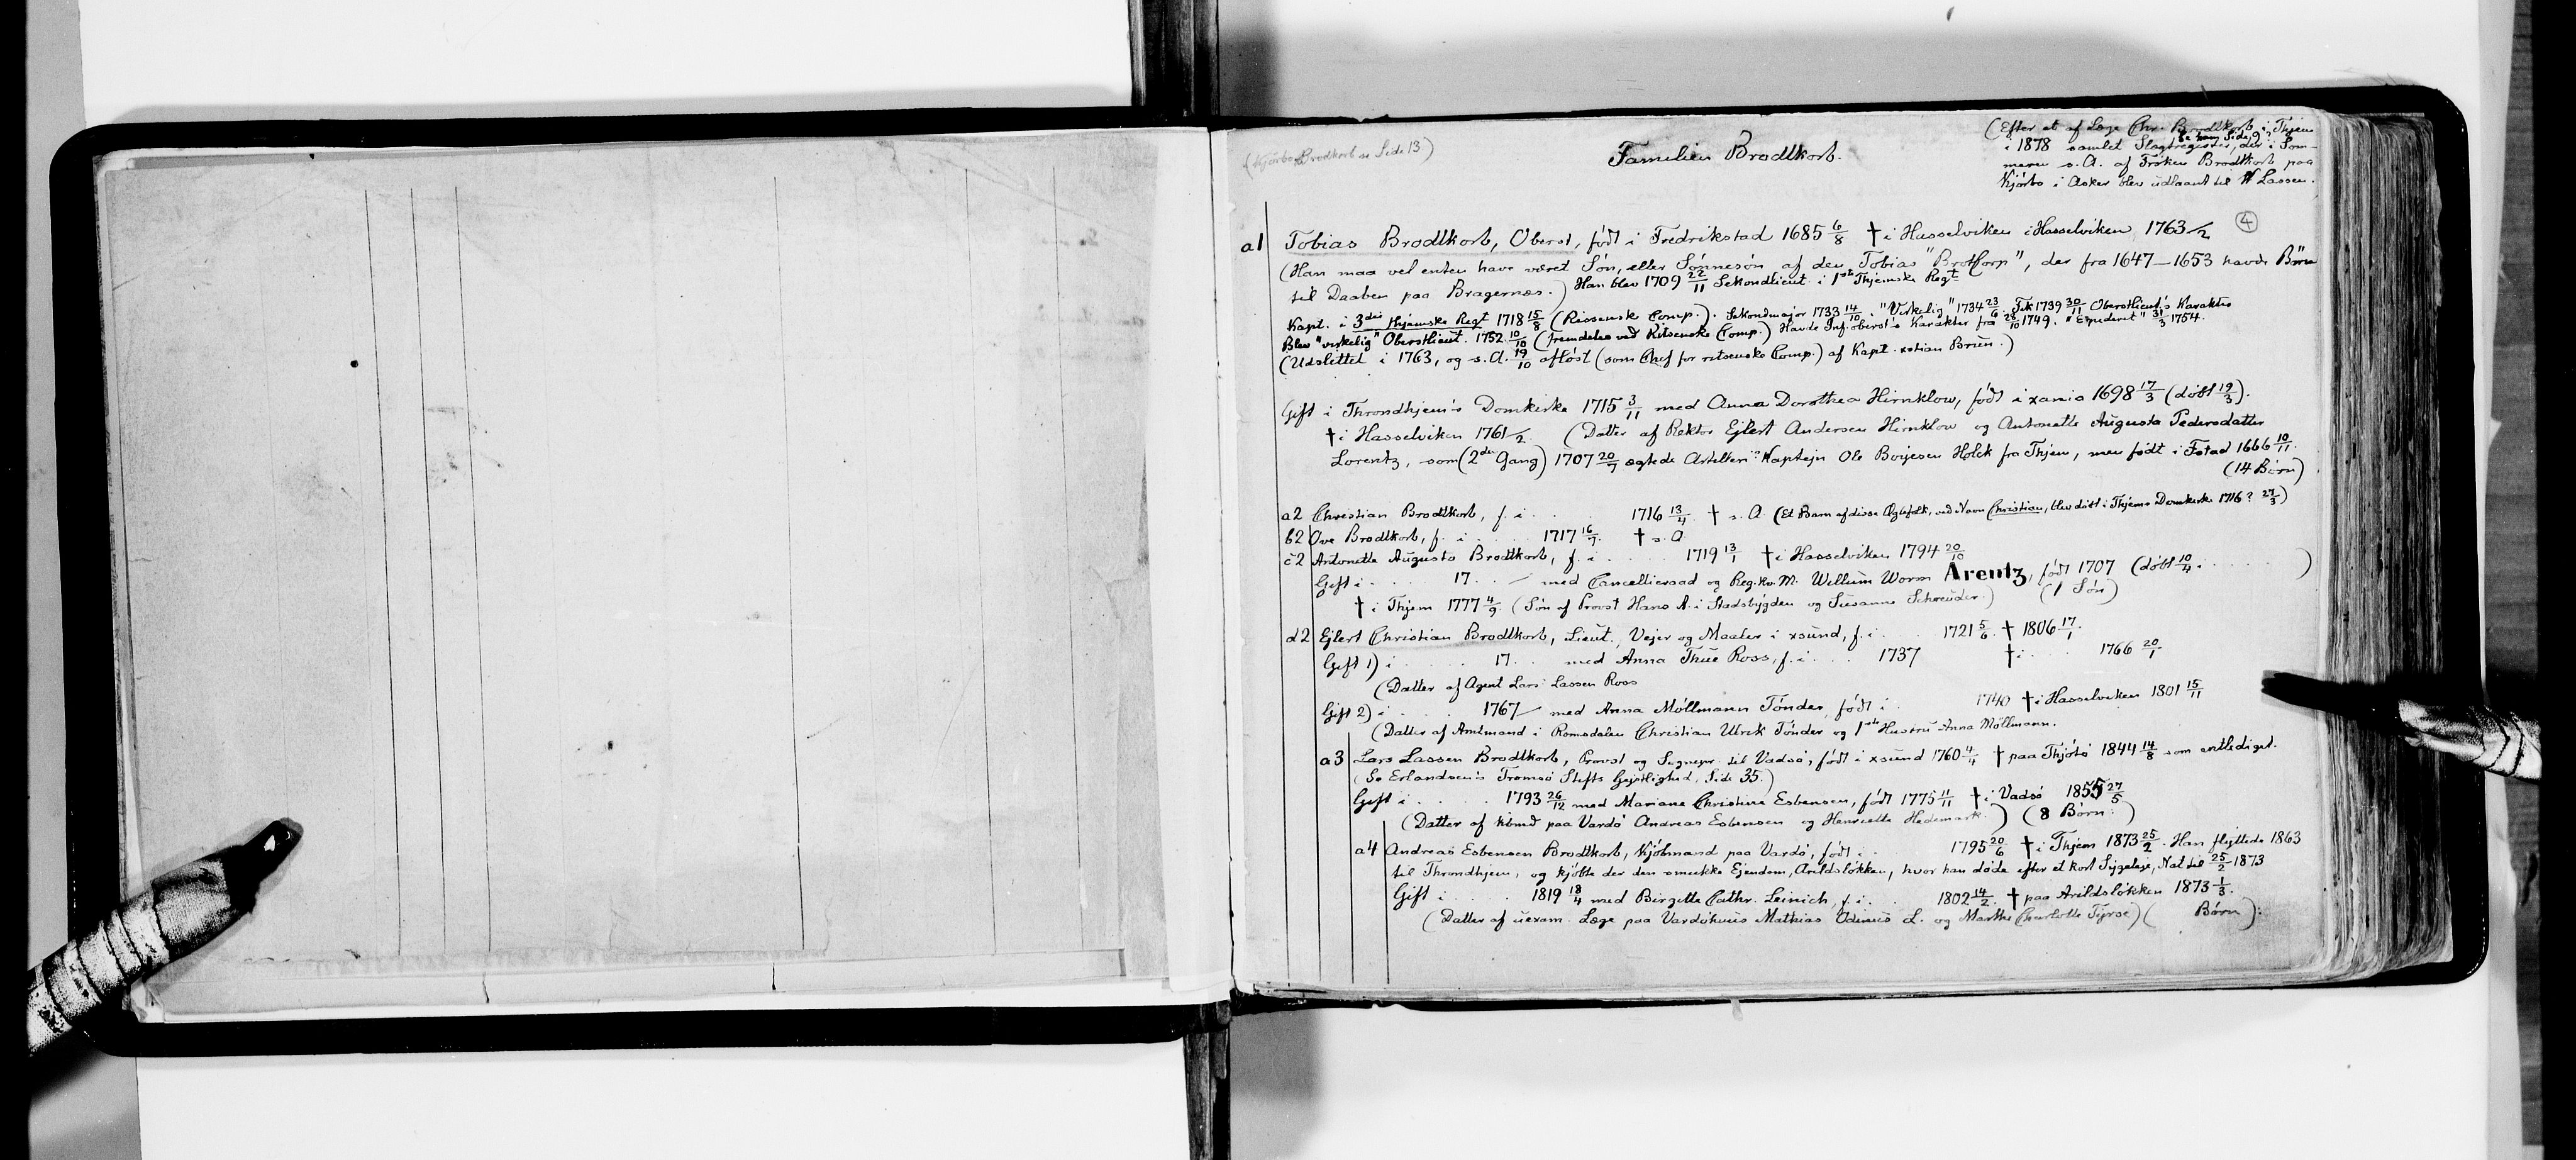 (Kjørbo Brodtkorb se Side 13.)
Familien Brodtkorb.
(Efter et af Læge Chr. Brodtkorb i Thjem
se ham Side 9
i 1878 samlet Slagtregister, der i Som-
meren s. A. af Frøken Brodtkorb paa
Kjørbo i Asker blev udlaant til W Lassen.
4
a1 Tobias Brodtkorb, Oberst, født i Fredrikstad 1685 6/8 † i Husselviken i Hasselviken 1763 /2
(Han maa vel enten have været Søn, eller Sønnesøn af den Tobias "Brotkorp", der fra 1647–1653 havde Børn
til Daaben paa Bragernæs.) Han blev 1709 22/11 Sekondlieut. i 1ste Thjemske Regt
Kapt. i 3die thjemske Regt 1718 15/8 (Rissenske Comp.). Sekondmajor 1733 14/10. "Virkelig" 1734 23/6. Fik 1739 30/11 Oberstlieut's Karakter
Blev "virkelig" Oberstlieut. 1752 10/10 (fremdeles ved Ritsenske Comp.) Havde Inf. oberst's Karakter fra 26/10 1749. "Expederet" 31/3 1754.
(Udslettet i 1763, og s. A. 19/10 afløst (som Chef for ritsenske Comp.) af Kapt. xstian Brün.)
Gift i Throndhjem's Domkirke 1715 3/11 med Anna Dorothea Hirnklow, født i xania 1698 17/3 (døbt 19/3).
† i Hasselviken 1761 /2. (Datter af Rektor Ejlert Andersen Hirnklow og Antonette Augusta Pedersdatter
Lorentz, som (2den Gang) 1707 20/7 ægtede Artilleri-Kaptejn Ole Børjesen Holck fra Thjem, men født i Fstad 1666 10/11.
(14 Børn)
a2 Christian Brodtkorb, f. i . . . 1716 13/4. † s. A. (Et Barn af disse Ægtefolk, ved Navn Christian, blev døbt i Thjems Domkirke 1716? 27/3)
b2 Ove Brodtkorb, f. i . . . . 1717 16/7. † s. A
c2 Antonette Augusta Brodtkorb, f. i . . . . 1719 13/1 † i Hasselviken 1794 20/10
Gift i . . . . 17 . . med Cancelliraad og Reg.kv.M. Willum Worm Arentz, født 1707 (døbt 10/4 i . . . . . )
† i Thjem 1777 4/9. (Søn af Provst Hans A. i Stadsbygden og Susanne Schreuder.) (1 Søn)
d2 Ejlert Christian Brodtkorb, Lieut., Vejer og Maaler i xsund, f. i . . 1721 5/6. † 1806 17/1.
Gift 1) i . . . . . 17 . . med Anna Thue Ross, f. i . . . 1737 † i . . . 1766 20/1
(Datter af Agent Lars Lassen Ross
Gift 2) i . . . . 1767 med Anna Möllmann Tønder, født i . . 1740 † i Hasselviken 1801 15/11
(Datter af Amtmand i Romsdalen Christian Ulrik Tønder og 1ste Hustru Anna Möllmann.
a3 Lars Lassen Brodtkorb, Provst og Sognepr. til Vadsø, født i xsund 1760 4/4 † paa Thjøtø 1844 14/8 som entlediget.
(Se Erlandsen's Tromsø Stifts Gejstlighed, Side 35.)
Gift i . . . . . 1793 26/12 med Mariane Christine Esbensen, født 1775 11/11 † i Vadsø 1855 27/5
(Datter af kbmd paa Vardø Andreas Esbensen og Henriette Hedemark.) (8 Børn.)
a4 Andreas Esbensen Brodtkorb, Kjøbmand paa Vardø, født i . . 1795 20/6 † i Thjem 1873 25/2. Han flyttede 1863
til Throndhjem, og kjøbte der den smukke Ejendom, Arildsløkken, hvor han døde efter et kort Sygeleje, Nat til 25/2 1873
Gift i . . . . 1819 18/4 med Birgitte Cathr. Leinich, f. i . . 1802 14/2. † paa Arildsløkken 1873 1/3.
(Datter af uexam. Læge paa Vardøhuus Mathias L. og Marthe Charlotte Tyrse) ( Børn).